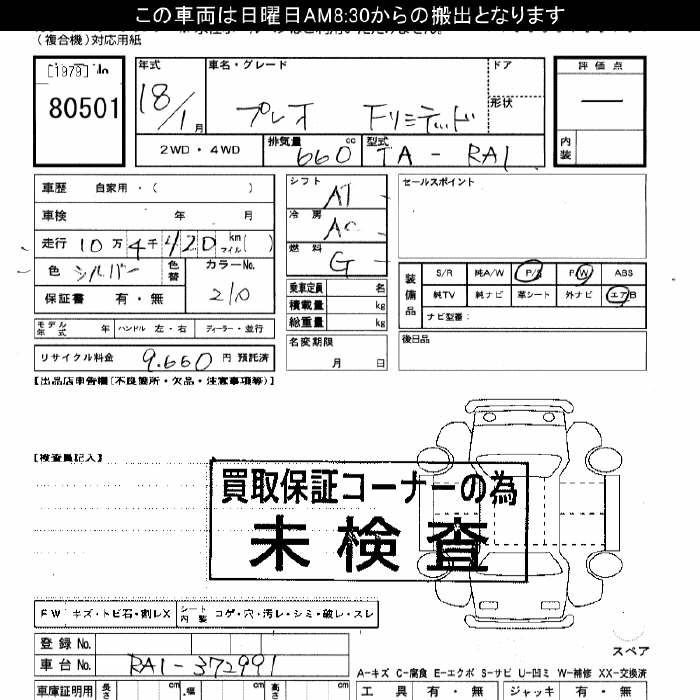 この車両は日曜日AM8:30からの搬出となります
（複合機）対応用紙
[1979] No
80501
年式 車名・グレード ドア 評価点
18/1月 プレオ Fリミテッド 形状 —
2WD・4WD 排気量 660 cc 型式 TA - RA1 内装
車歴 自家用・（ ）
車検 年 月
走行 10万4千420 km マイル ( )
色 シルバー 色替 カラーNo.
保証書 有・無 210
モデル年式 年 ハンドル 左・右 ディーラー・並行
リサイクル料金 9.660 円 預託済
シフト AT
冷房 AC
燃料 G
乗車定員 名
積載量 kg
総重量 kg
名変期限
月 日
セールスポイント
装備品 S/R 純A/W P/S P/W ABS
純TV 純ナビ 革シート 外ナビ エアB
ナビ型番：
後日品
【出品店申告欄[不良箇所・欠品・注意事項等]】
【検査員記入】
買取保証コーナーの為
未検査
FW キズ・トビ石・割レX シート内装 コゲ・穴・汚レ・シミ・破レ・スレ
登録No.
車台No. RA1-372991
スペア
A-キズ C-腐食 E-エクボ S-サビ U-凹ミ W-補修 XX-交換済
車庫証明用 長さ cm 幅 cm 高さ cm 工具 有・無 ジャッキ 有・無